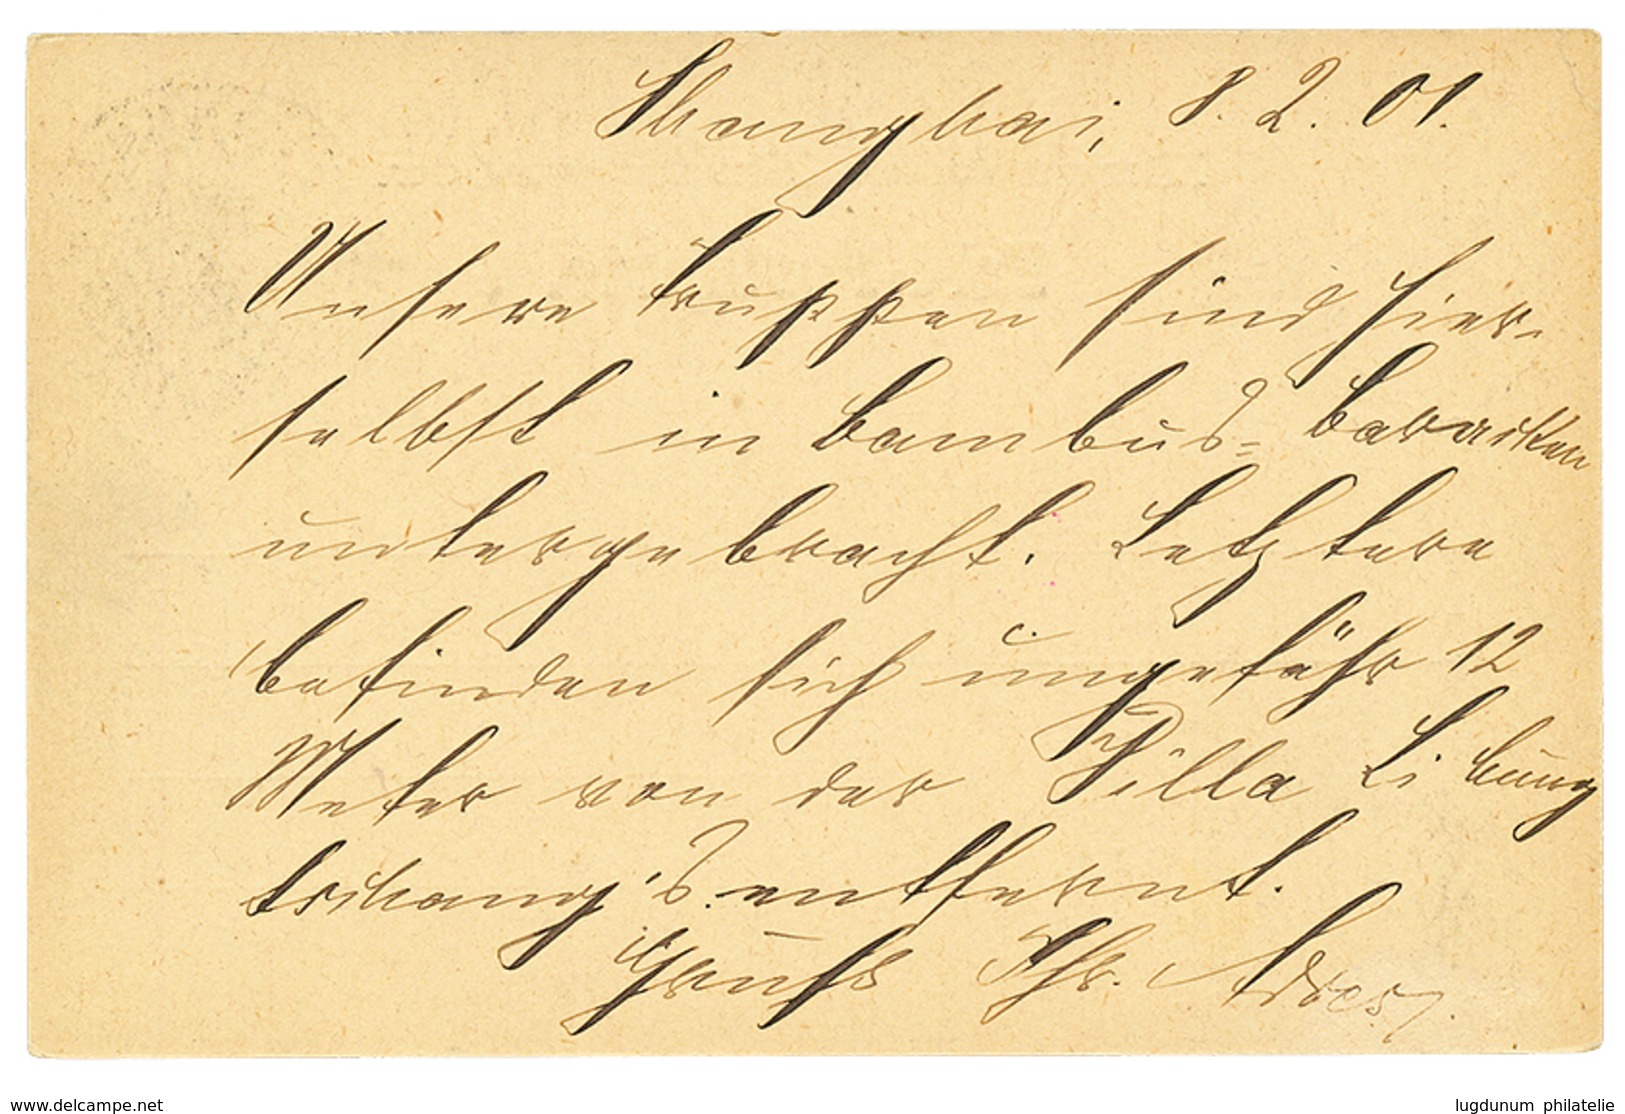 Shanghai, 8. 2. 01.
Unsere Truppen sind hier-
selbst in Bambus-Baracken
untergebracht. Letztere
befinden sich ungefähr 12
Meter von der Villa Li hung
tschang's entfernt.
Gruß Ihr
www.delcampe.net
lugdunum philatelie